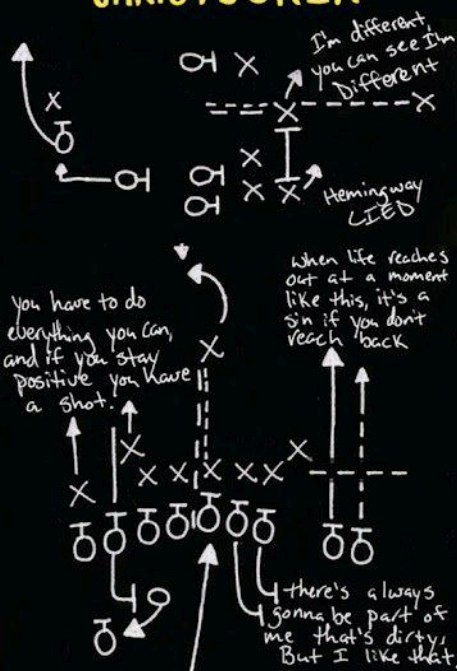 I'm different,
you can see I'm
Different
Hemingway
LIED
when life reaches
out at a moment
like this, it's a
sin if you don't
reach back
you have to do
everything you can,
and if you stay
positive you have
a shot.
there's always
gonna be part of
me that's dirty,
But I like that